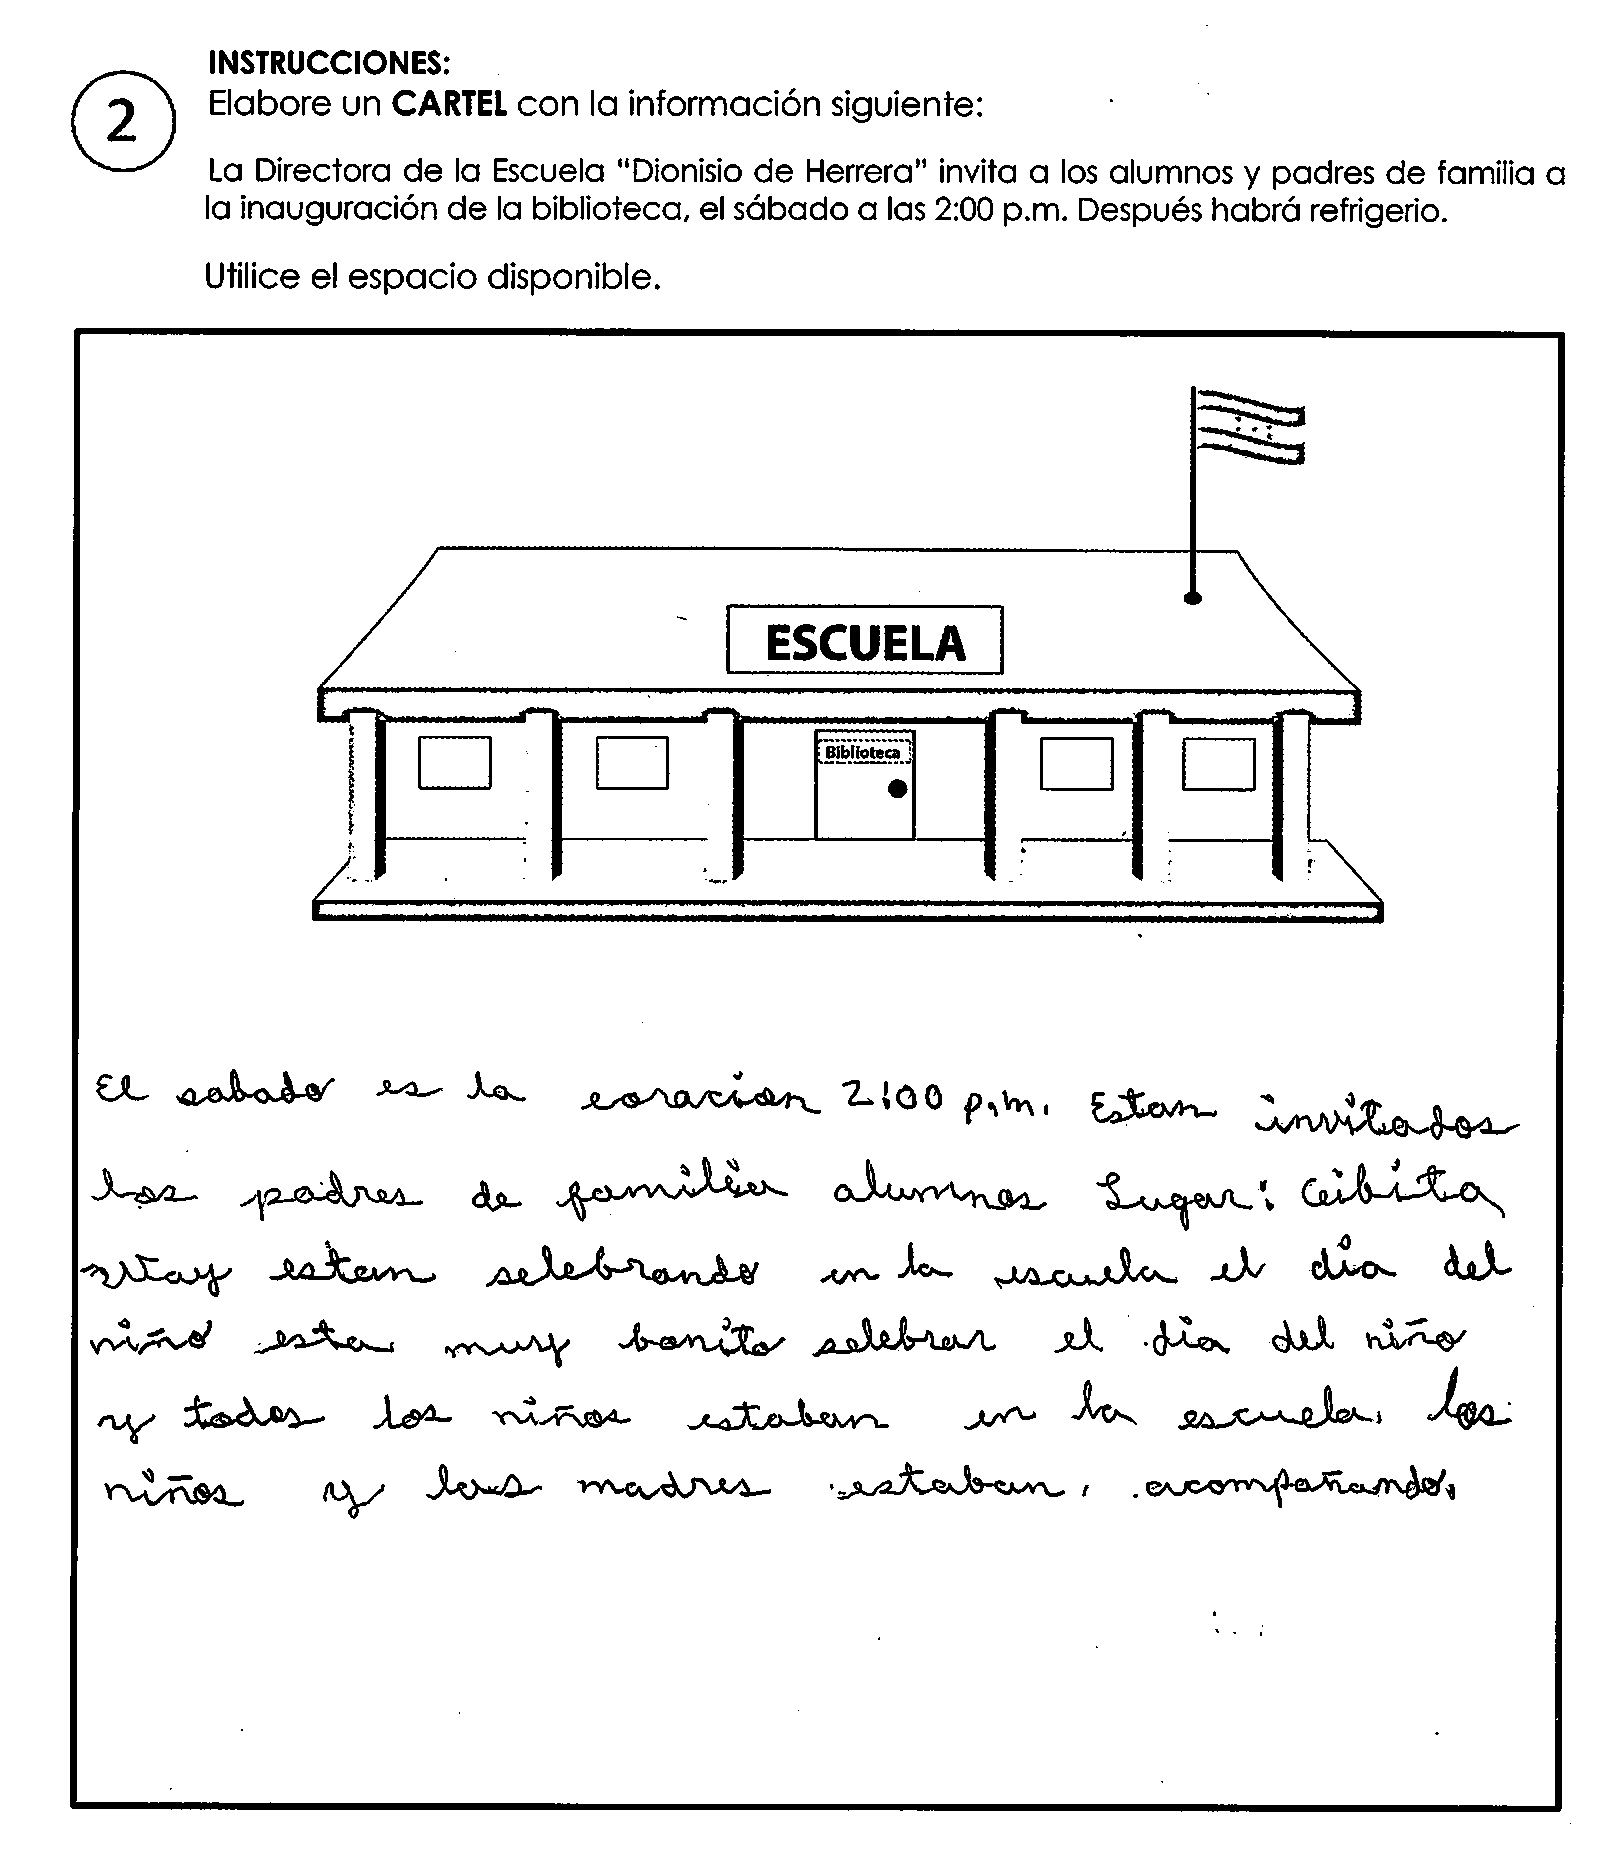 INSTRUCCIONES:
2
Elabore un CARTEL con la información siguiente:
La Directora de la Escuela "Dionisio de Herrera" invita a los alumnos y padres de familia a
la inauguración de la biblioteca, el sábado a las 2:00 p.m. Después habrá refrigerio.
Utilice el espacio disponible.
ESCUELA
Biblioteca
El sabado es la coracion 2:00 p.m. Estan invitados
los padres de familia alumnos Lugar: Ceibita
estan selebrando en la escuela el dia del
niño esta muy bonito selebrar el dia del niño
y todos los niños estaban en la escuela, los
niños y las madres estaban, acompañando.